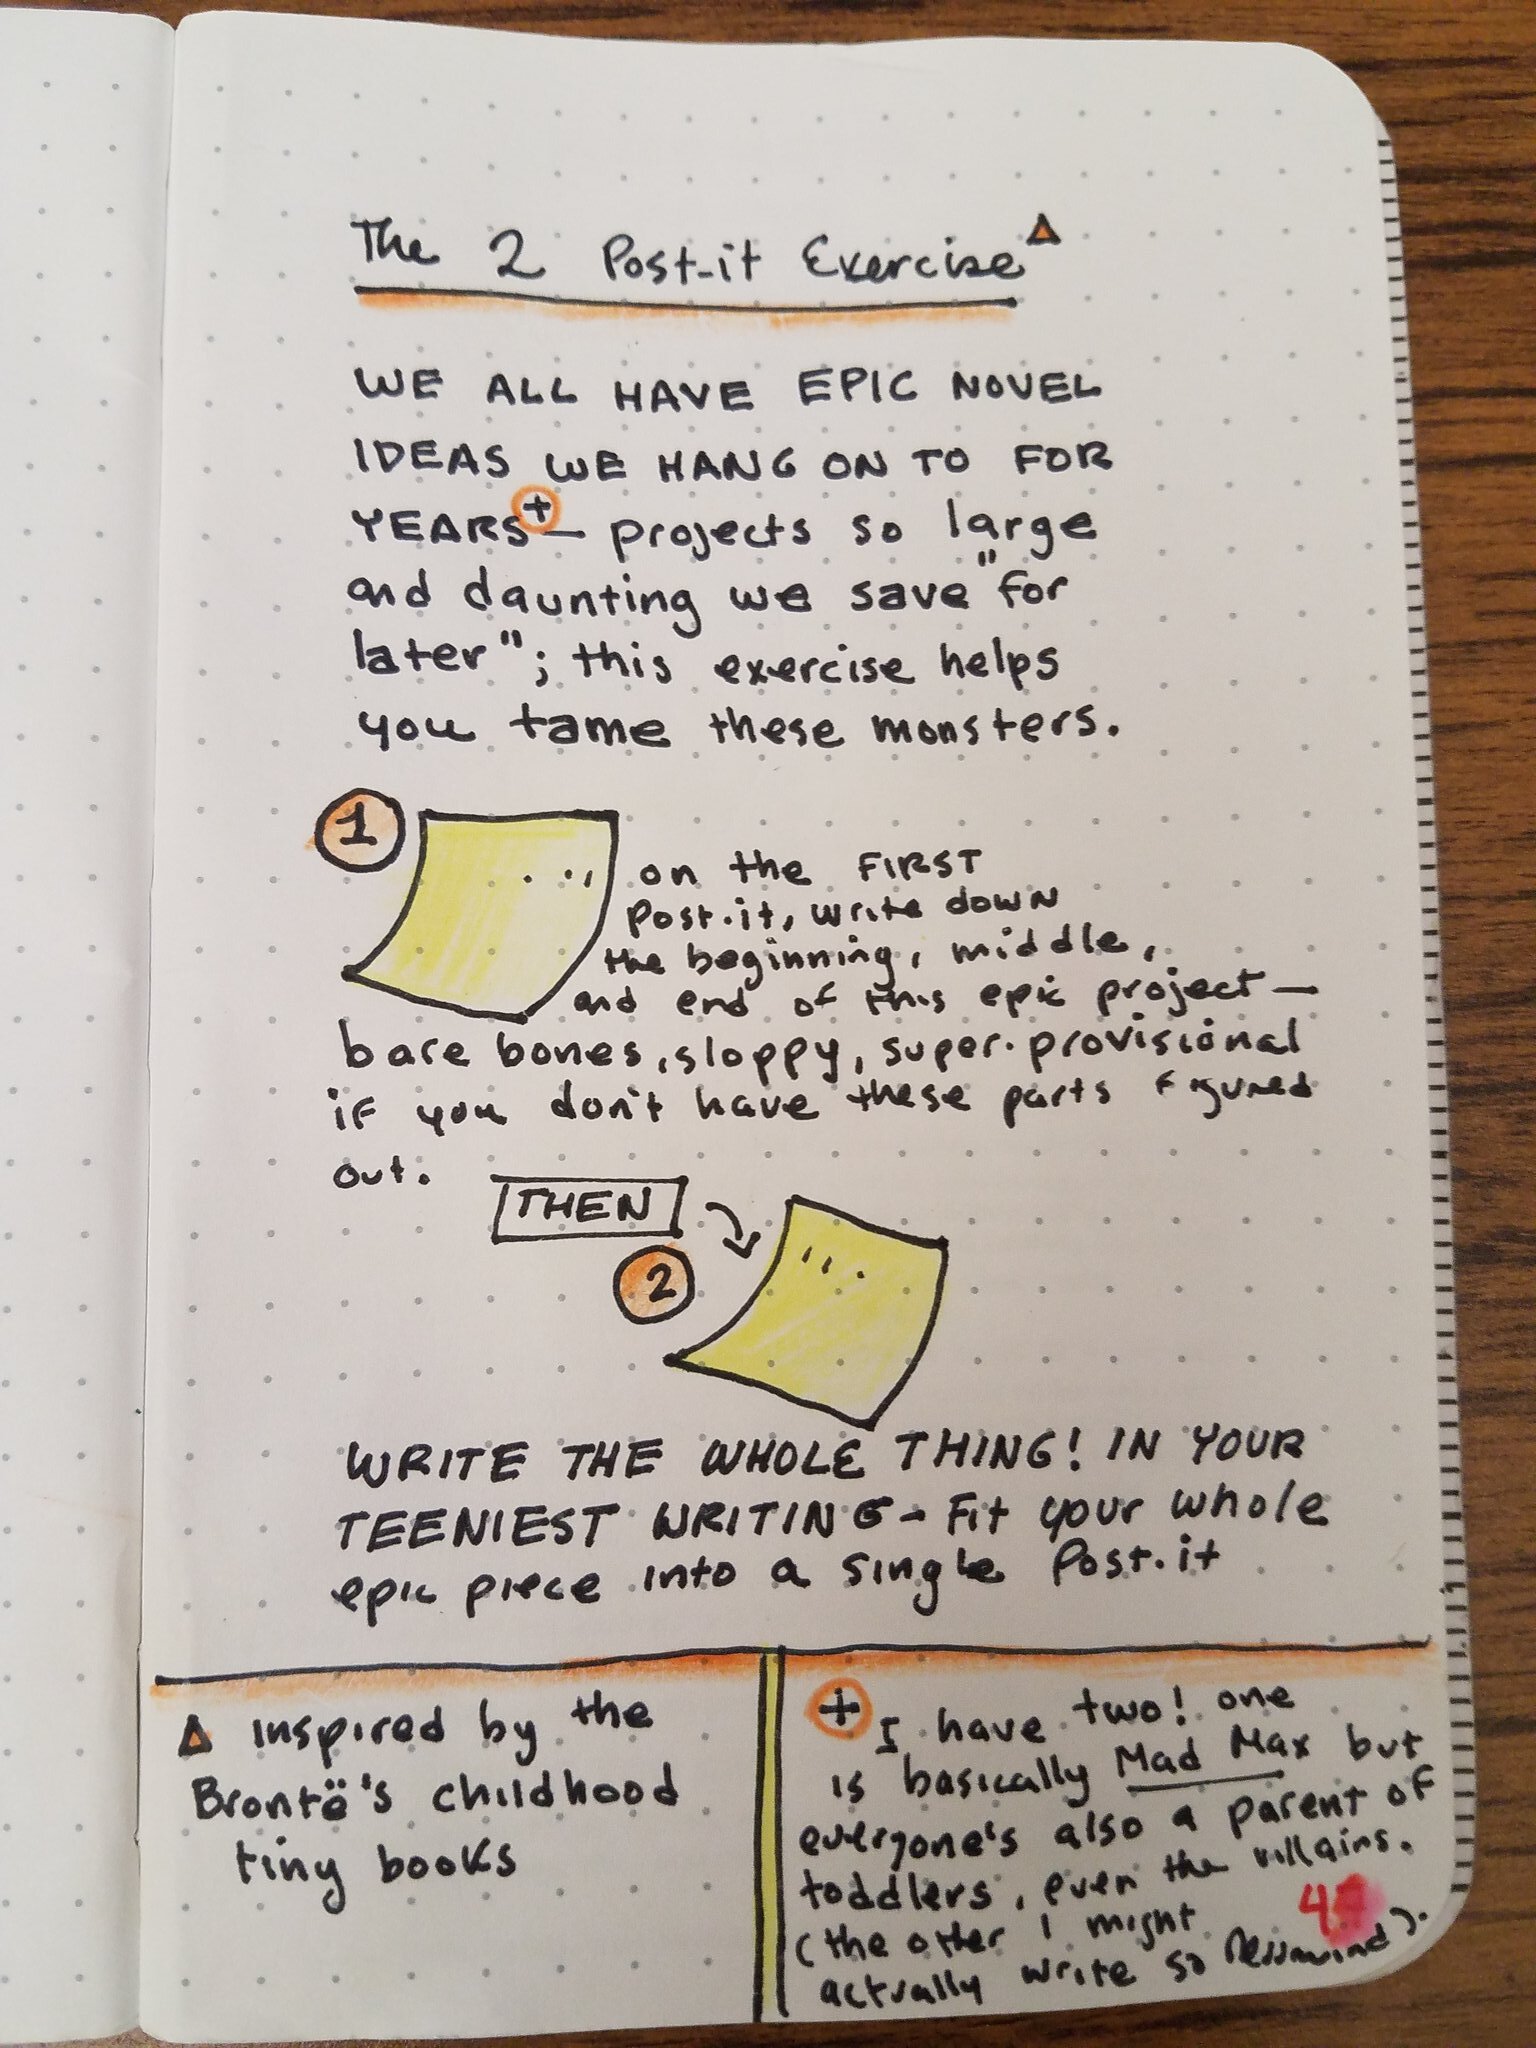 The 2 Post-it Exercise △
WE ALL HAVE EPIC NOVEL
IDEAS WE HANG ON TO FOR
YEARS+ – projects so large
and daunting we save "for
later"; this exercise helps
you tame these monsters.
1
on the FIRST
Post-it, write down
the beginning, middle,
and end of this epic project –
bare bones, sloppy, super-provisional
if you don't have these parts figured
out.
THEN
2
WRITE THE WHOLE THING! IN YOUR
TEENIEST WRITING – Fit your whole
epic piece into a single Post-it
△ inspired by the
Brontë's childhood
tiny books
+ I have two! one
is basically Mad Max but
everyone's also a parent of
toddlers, even the villains.
(the other I might
actually write so nevermind).
4